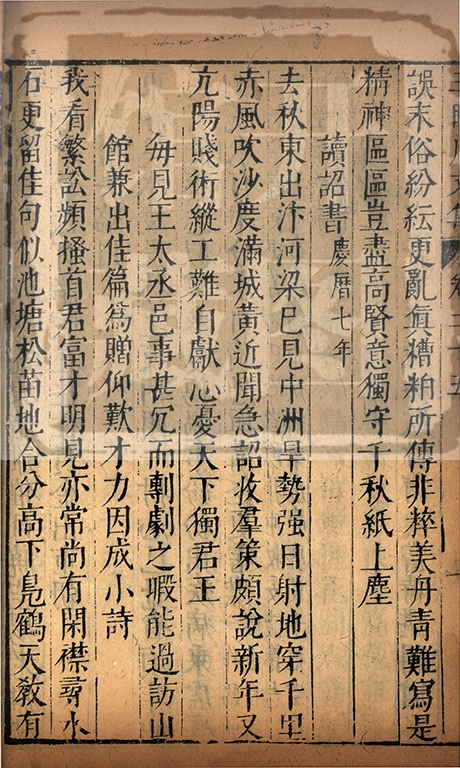 王臨川文集 卷二十五
誤末俗紛紜更亂眞糟粕所傳非粹美丹青難寫是
精神區區豈盡高賢意獨守千秋紙上塵
讀詔書慶曆七年
去秋東出汴河梁已見中洲旱勢强日射地穿千里
赤風吹沙度滿城黃近聞急詔收羣策頗說新年又
亢陽賤術縱工難自獻心憂天下獨君王
每見王太丞邑事甚冗而剸劇之暇能過訪山
館兼出佳篇爲贈仰歎才力因成小詩
我看繁訟頻搔首君富才明見亦常尚有閑襟尋水
石更留佳句似池塘松苗地合分高下鳧鶴天教有